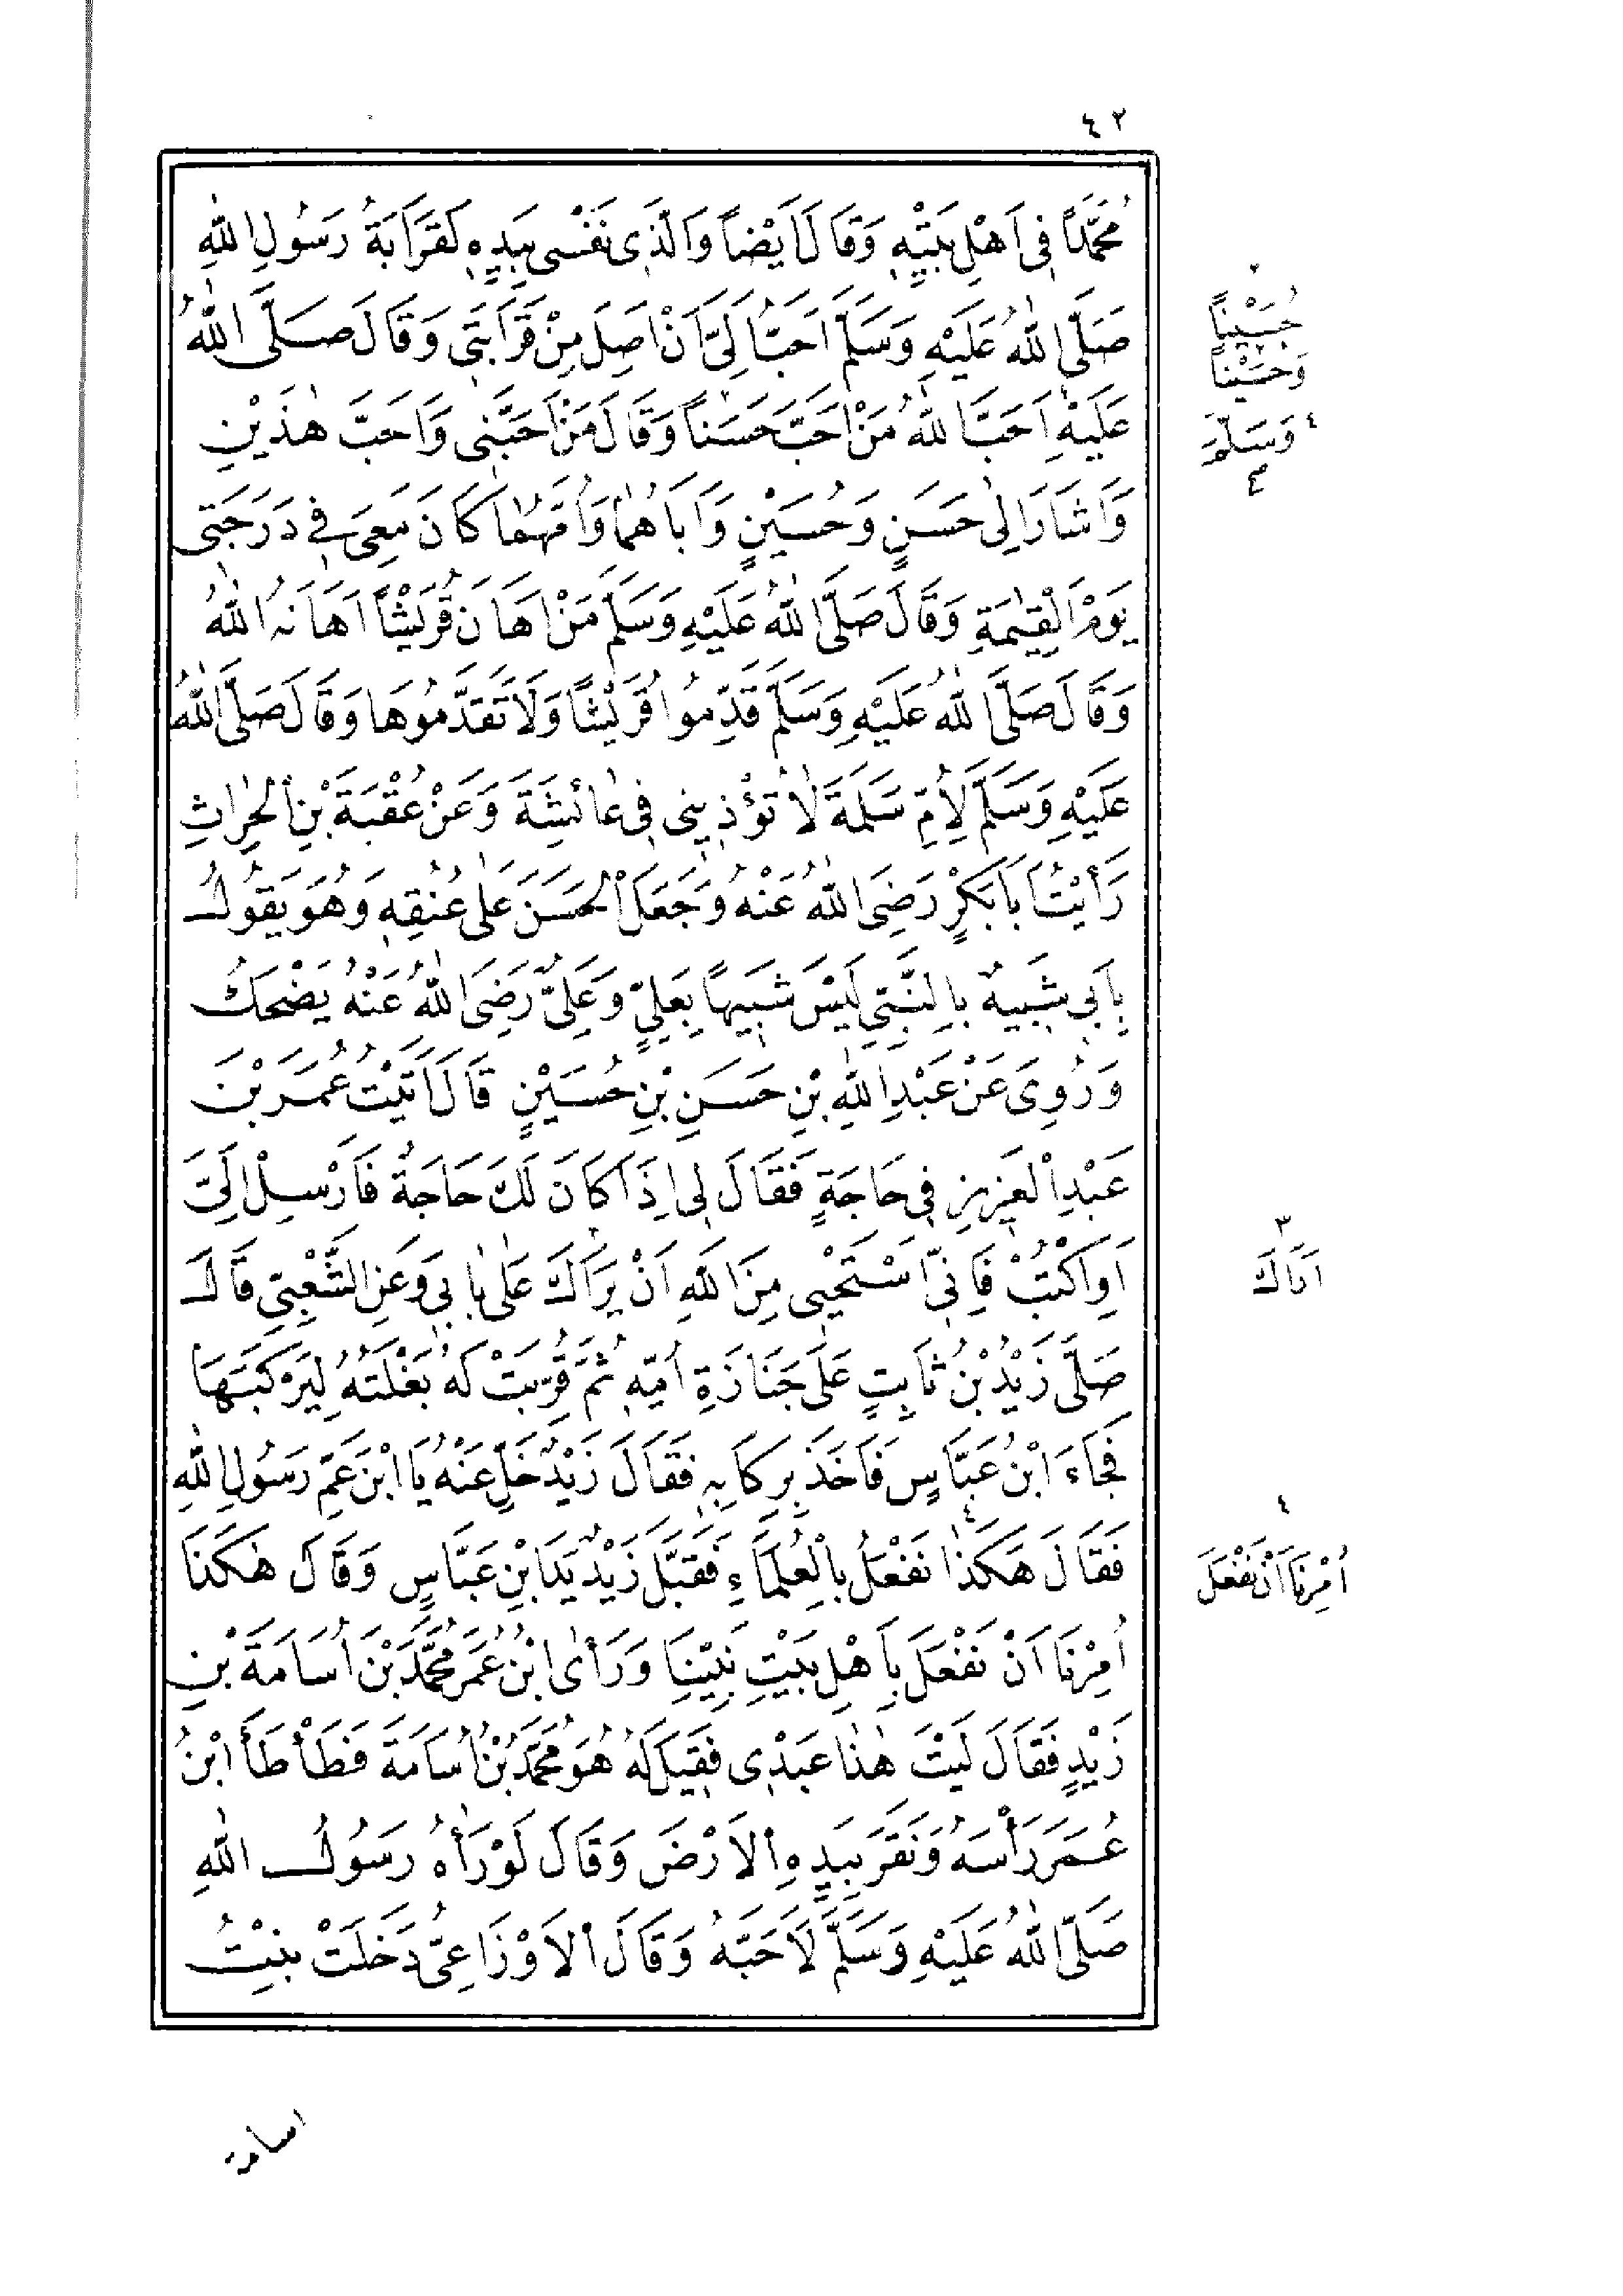 ٤٢
مُحَمَّدًا فِى اَهْلِ بَيْتِهِ وَقَالَ اَيْضاً وَالَّذِى نَفْسِى بِيَدِهِ لَقَرَابَةُ رَسُولِ اللّٰهِ
صَلَّى اللّٰهُ عَلَيْهِ وَسَلَّمَ اَحَبُّ اِلَىَّ اَنْ اَصِلَ مِنْ قَرَابَتِى وَقَالَ صَلَّى اللّٰهُ
عَلَيْهِ اَحَبَّ اللّٰهُ مَنْ اَحَبَّ حَسَناً وَقَالَ مَنْ اَحَبَّنِى وَاَحَبَّ هٰذَيْنِ
وَاَشَارَ اِلٰى حَسَنٍ وَحُسَيْنٍ وَاَبَاهُمَا وَاُمَّهُمَا كَانَ مَعِىَ فِى دَرَجَتِى
يَوْمَ الْقِيٰمَةِ وَقَالَ صَلَّى اللّٰهُ عَلَيْهِ وَسَلَّمَ مَنْ اَهَانَ قُرَيْشاً اَهَانَهُ اللّٰهُ
وَقَالَ صَلَّى اللّٰهُ عَلَيْهِ وَسَلَّمَ قَدِّمُوا قُرَيْشًا وَلَا تَقَدَّمُوهَا وَقَالَ صَلَّى اللّٰهُ
عَلَيْهِ وَسَلَّمَ لِاُمِّ سَلَمَةَ لَا تُؤْذِينِى فِى عَائِشَةَ وَعَنْ عُقْبَةَ بْنِ الْحٰرِثِ
رَأَيْتُ اَبَا بَكْرٍ رَضِىَ اللّٰهُ عَنْهُ وَجَعَلَ الْحَسَنَ عَلٰى عُنُقِهِ وَهُوَ يَقُولُ
بِاَبِى شَبِيهٌ بِالنَّبِىِّ لَيْسَ شَبِيهًا بِعَلِىٍّ وَعَلِىٌّ رَضِىَ اللّٰهُ عَنْهُ يَضْحَكُ
وَرُوِىَ عَنْ عَبْدِ اللّٰهِ بْنِ حَسَنِ بْنِ حُسَيْنٍ قَالَ اَتَيْتُ عُمَرَ بْنَ
عَبْدِ الْعَزِيزِ فِى حَاجَةٍ فَقَالَ لِى اِذَا كَانَ لَكَ حَاجَةٌ فَاَرْسِلْ اِلَىَّ
اَوِ اكْتُبْ فَاِنِّى اَسْتَحْيِى مِنَ اللّٰهِ اَنْ يَرَاكَ عَلٰى بَابِى وَعَنِ الشَّعْبِىِّ قَالَ
صَلَّى زَيْدُ بْنُ ثَابِتٍ عَلٰى جَنَازَةِ اُمِّهِ ثُمَّ قُرِّبَتْ لَهُ بَغْلَتُهُ لِيَرْكَبَهَا
فَجَاءَ ابْنُ عَبَّاسٍ فَاَخَذَ بِرِكَابِهِ فَقَالَ زَيْدٌ خَلِّ عَنْهُ يَا ابْنَ عَمِّ رَسُولِ اللّٰهِ
فَقَالَ هٰكَذَا نَفْعَلُ بِالْعُلَمَاءِ فَقَبَّلَ زَيْدٌ يَدَ ابْنِ عَبَّاسٍ وَقَالَ هٰكَذَا
اُمِرْنَا اَنْ نَفْعَلَ بِاَهْلِ بَيْتِ نَبِيِّنَا وَرَأٰى ابْنُ عُمَرَ مُحَمَّدَ بْنَ اُسَامَةَ بْنِ
زَيْدٍ فَقَالَ لَيْتَ هٰذَا عَبْدِى فَقِيلَ لَهُ هُوَ مُحَمَّدُ بْنُ اُسَامَةَ فَطَأْطَأَ ابْنُ
عُمَرَ رَأْسَهُ وَنَقَرَ بِيَدِهِ الْاَرْضَ وَقَالَ لَوْ رَاٰهُ رَسُولُ اللّٰهِ
صَلَّى اللّٰهُ عَلَيْهِ وَسَلَّمَ لَاَحَبَّهُ وَقَالَ الْاَوْزَاعِىُّ دَخَلَتْ بِنْتُ
حُسَيْناً
وَحُسَيْناً
٤ وَسَلَّمَ
٣
اَرَاكَ
٤
اُمِرْنَا اَنْ نَفْعَلَ
اسامة